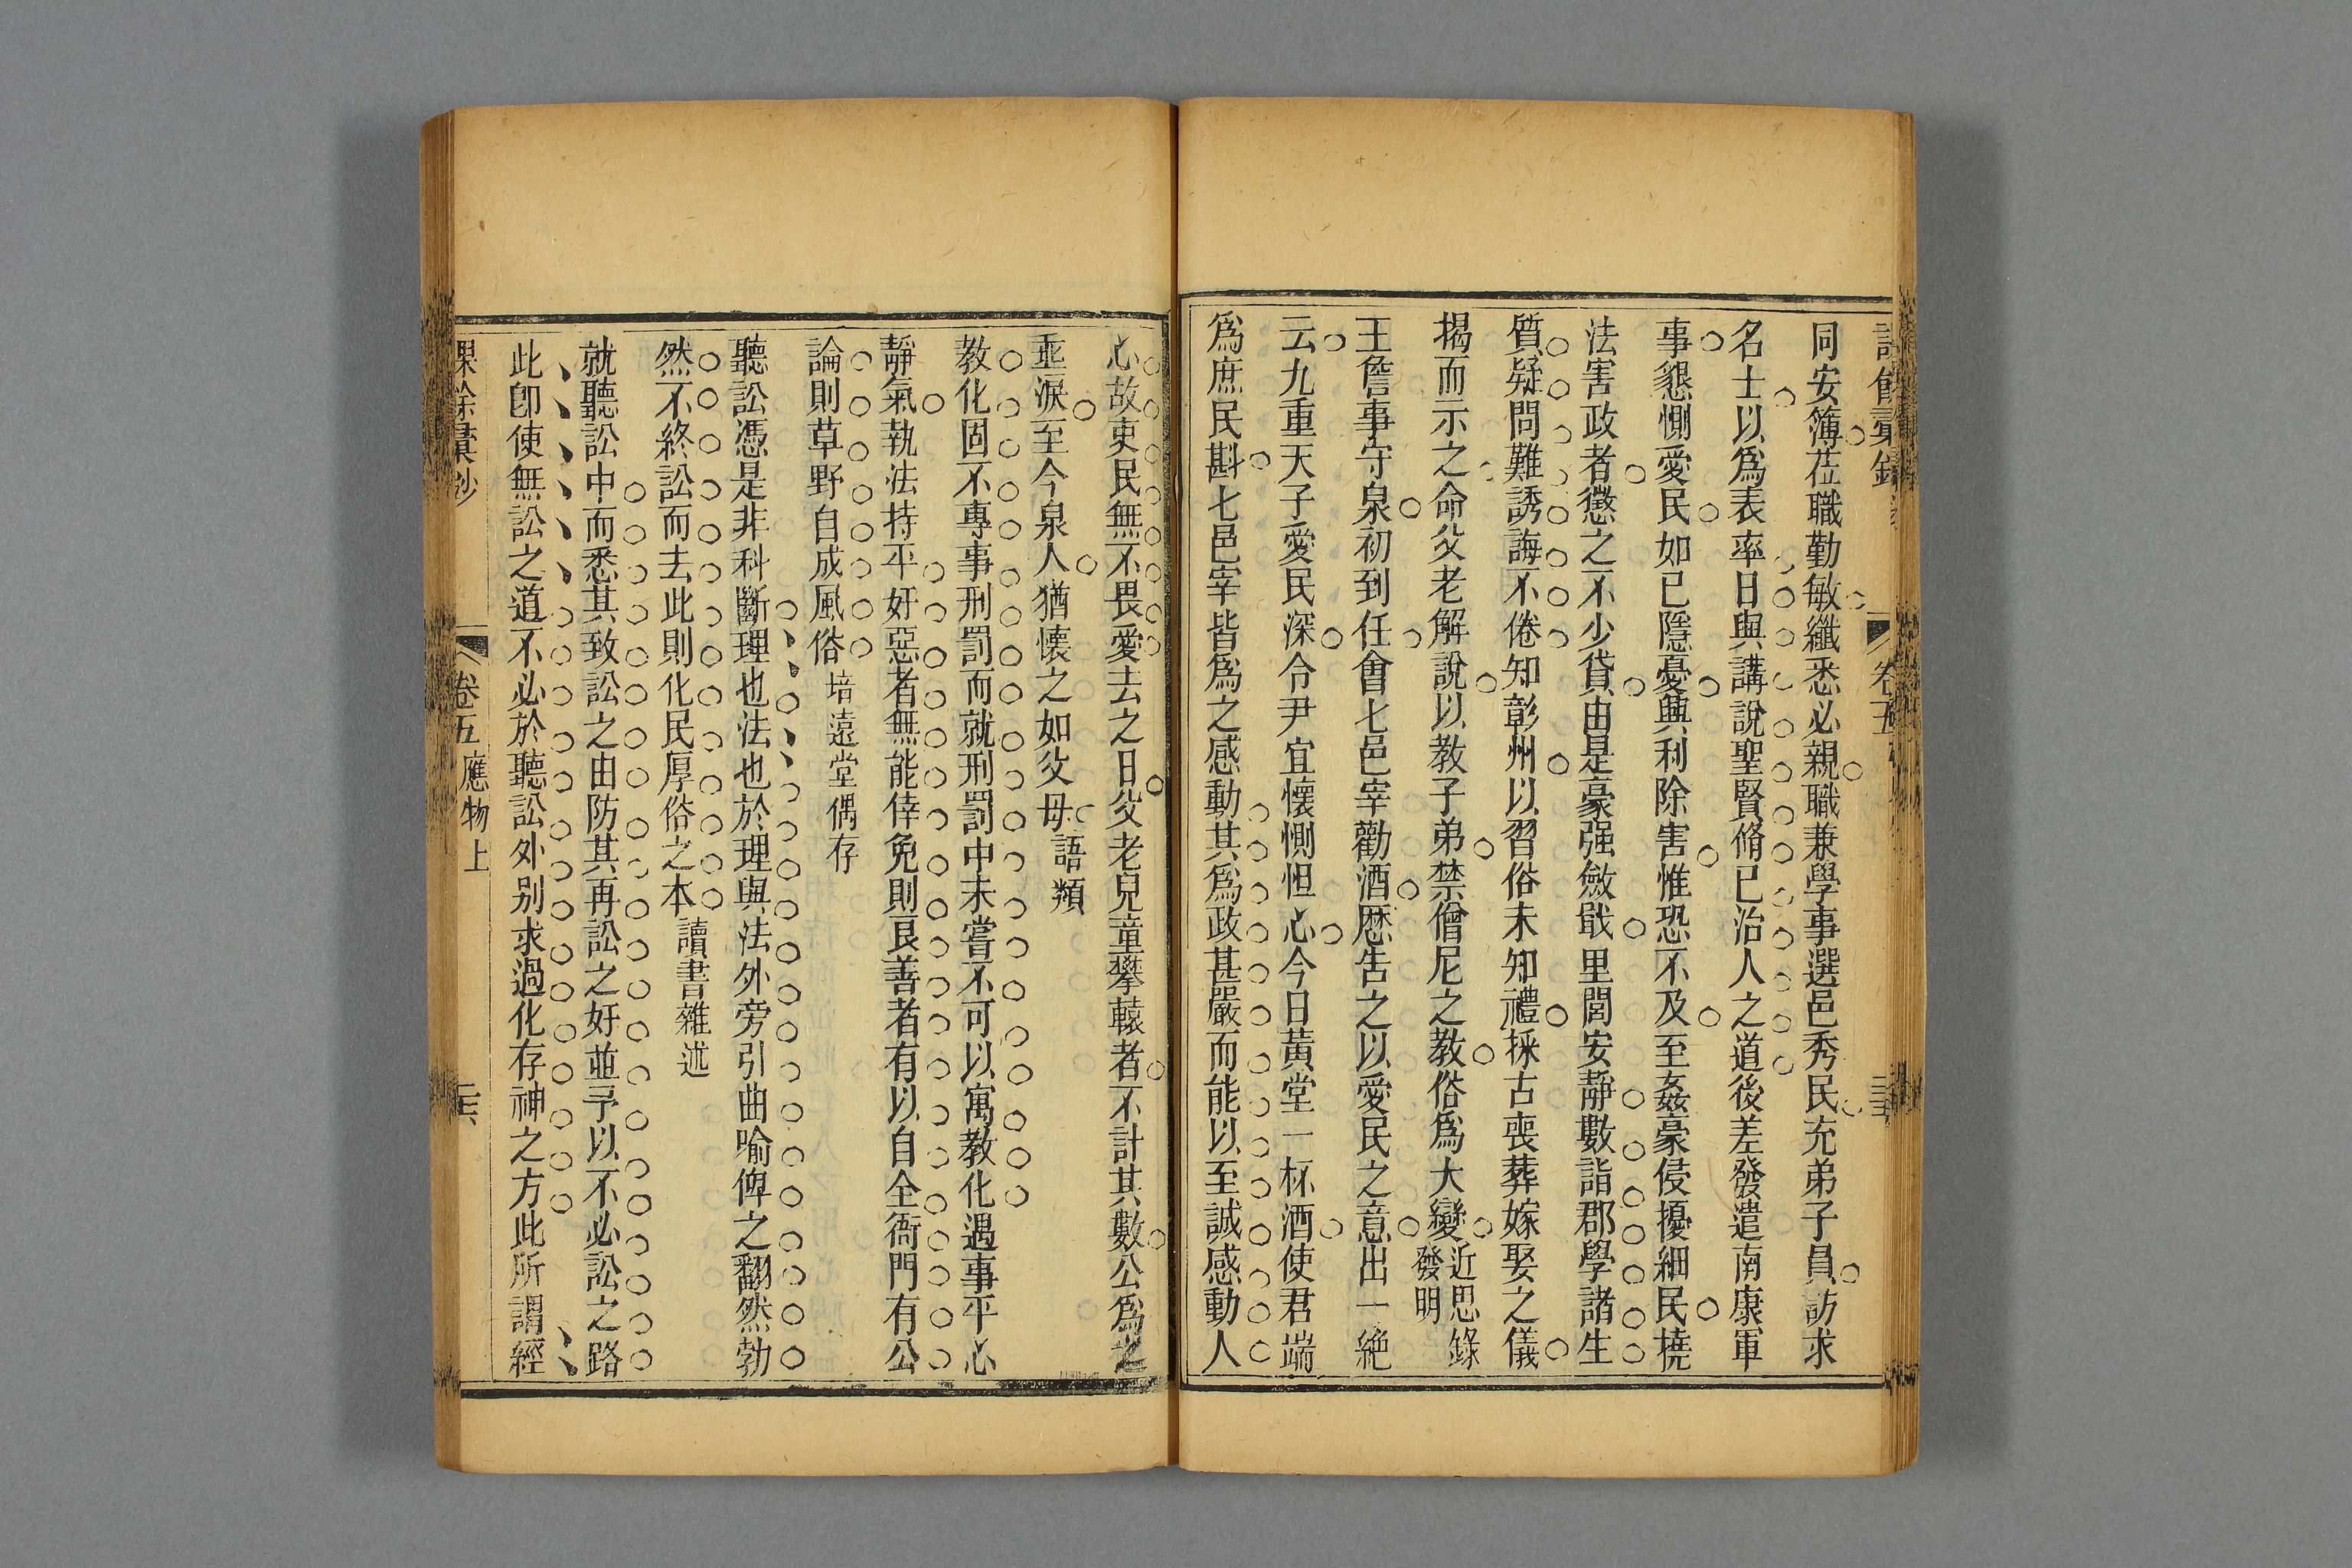 卷五
同安簿莅職勤敏纖悉必親職兼學事選邑秀民充弟子員訪求
名士以爲表率日與講說聖賢脩已治人之道後差發遣南康軍
事懇惻愛民如已隱憂興利除害惟恐不及至姦豪侵擾細民撓
法害政者懲之不少貸由是豪强斂戢里閭安靜數詣郡學諸生
質疑問難誘誨不倦知彰州以習俗未知禮採古喪葬嫁娶之儀
揭而示之命父老解說以教子弟禁僧尼之教俗爲大變近思錄發明
王詹事守泉初到任會七邑宰勸酒歷告之以愛民之意出一絕
云九重天子愛民深令尹宜懷惻怛心今日黃堂一杯酒使君端
爲庶民斟七邑宰皆爲之感動其爲政甚嚴而能以至誠感動人
心故吏民無不畏愛去之日父老兒童攀轅者不計其數公爲之
垂淚至今泉人猶懷之如父母語類
教化固不專事刑罰而就刑罰中未嘗不可以寓教化遇事平心
靜氣執法持平奸惡者無能倖免則良善者有以自全衙門有公
論則草野自成風俗培遠堂偶存
聽訟憑是非科斷理也法也於理與法外旁引曲喻俾之翻然勃
然不終訟而去此則化民厚俗之本讀書雜述
就聽訟中而悉其致訟之由防其再訟之奸並予以不必訟之路
此卽使無訟之道不必於聽訟外别求過化存神之方此所謂經
課餘彙鈔 卷五 應物上 三六